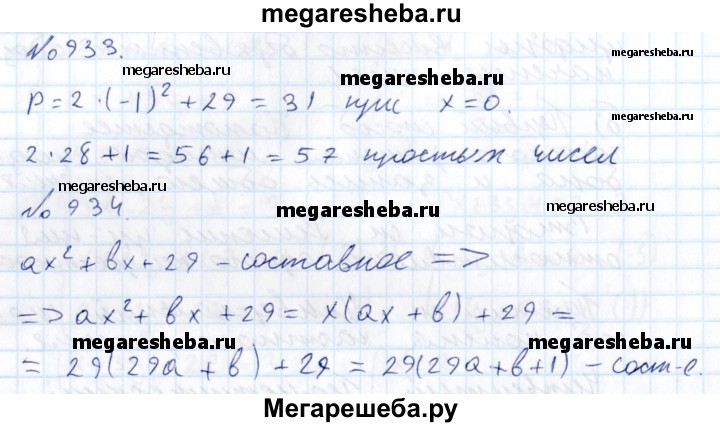 megaresheba.ru
№ 933.
megaresheba.ru
megaresheba.ru
megaresheba.ru
p = 2·(-1)² + 29 = 31 при x = 0.
2·28 + 1 = 56 + 1 = 57 простых чисел
megaresheba.ru
№ 934.
megaresheba.ru
megaresheba.ru
ax² + bx + 29 – составное =>
=> ax² + bx + 29 = x(ax + b) + 29 =
megaresheba.ru
megaresheba.ru
= 29(29a + b) + 29 = 29(29a + b + 1) – сост-е.
Мегарешеба.ру